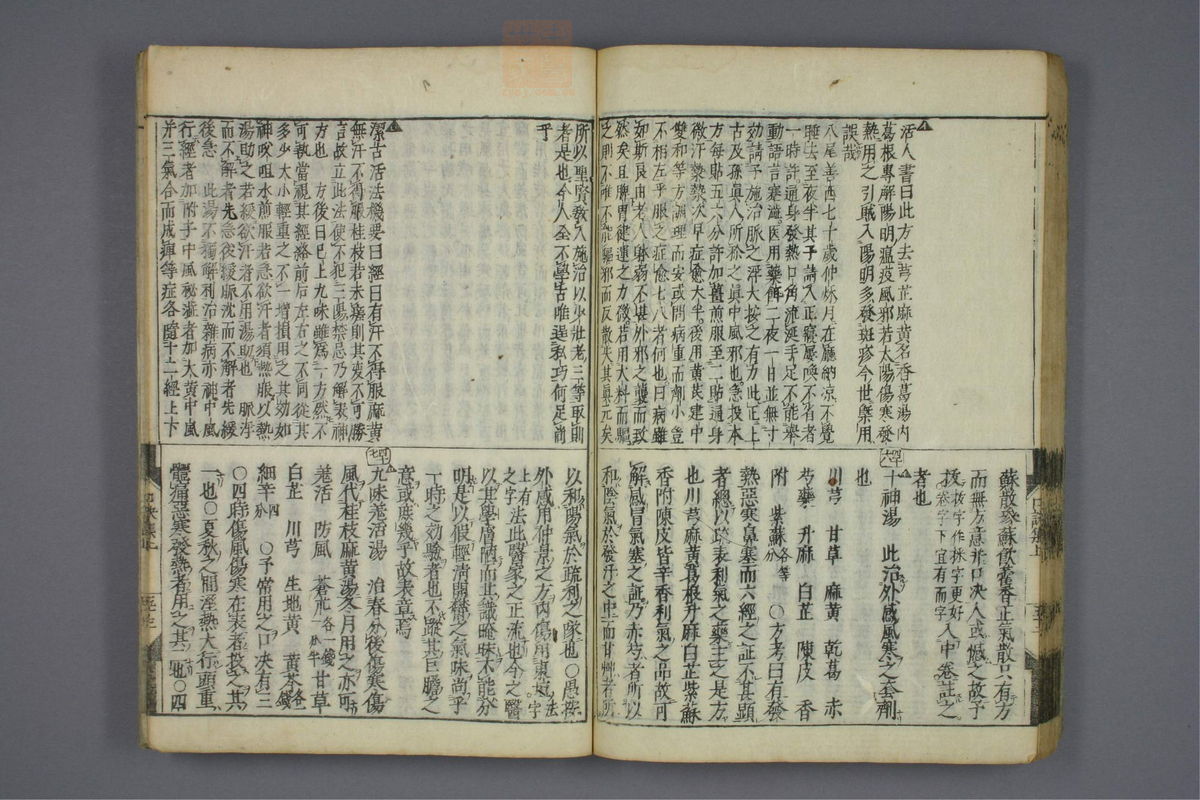 活人書曰此方去芎芷麻黄名香葛湯内
葛根專解陽明瘟疫風邪若太陽傷寒發
熱用之引賊入陽明多發斑疹今世槩用
誤哉
八尾善西七十歳仲秌月在廳納凉不覺
睡去至夜半其予請入正寢屢喚不省者
一時許通身發熱口角流涎手足不能舉
動語言蹇澁医用藥餌二夜一日並無寸
効請予施治脉之浮大按之有力此正上
古及孫真人所称之真中風邪也急投本
方每貼五六分許加薑煎服至二貼通身
微汗漐漐次早症愈大半後用黄芪建中
雙和等方調理而安或問病重而劑小豈
不相左乎服之症愈七八者何也曰病雖
如斯良由老人躰弱不甚外邪之襲而致
然矣且脾胃健運之力微若用大料而驅
之則不唯不能驅邪而反散失其真元矣
所以聖賢教人施治以少壯老三等取則
者是也今人全不學古唯逞私巧何足尚
乎
潔古活法機要曰經曰有汗不得服麻黄
無汗不得服桂枝若未瘥則其変不可勝
言故立此法使不犯三陽禁忌乃解表神
方也 方後曰已上九味雖爲一方然不
可執當視其經絡前后左右之不同從其
多少大小輕重之不一增損用之其効如
神㕮咀水煎服若急欲汗者須熱服以熱
湯助之若緩欲汗者不用湯助也 脈浮
而不解者先急後緩脈沈而不解者先緩
後急 此湯不獨解利治雜病亦神中風
行經者加附子中風秘澁者加大黄中風
并三氣合而成痺等症各隨十二經上下
蘇散參蘇飲藿香正氣散只有方
而無方意并口决人或憾之故予
抜抜字作採字更好入中卷註之
抜㳒字下宜有而字
者也
十神湯 此治外感風寒之套劑
也
川芎 甘草 麻黄 乾葛 赤
芍藥 升麻 白芷 陳皮 香
附 紫蘇各等分 〇方考曰有發
熱惡寒鼻塞而六經之証不甚顯
者總以疏表利氣之藥主之是方
也川芎麻黄葛根升麻白芷紫蘇
香附陳皮皆辛香利氣之品故可
解感冒氣塞之証乃亦芍者所以
和陰氣於發汗之中而甘艸者所
以和陽氣於疏利之隊也〇愚按
外感用仲景之方内傷用東垣之法
上有法此醫家之正流也今之醫
以其學膚陋而其識曖昧不能分
明是以假輕淸開發之氣味尚乎
一時之効驗者也不蹤其巨膽之
意或庶幾乎故表章焉
九味羗活湯 治春分後傷寒傷
風代桂枝麻黄湯冬月用之亦可
羗活 防風 蒼朮各一錢一分半 甘草
白芷 川芎 生地黄 黄芩各一錢
細辛四分 〇予常用之口决有三
〇四時傷風傷寒在表者投之其
一也〇夏秋之間溼熱大行頭重
體痛惡寒發熱者用之其二也〇四